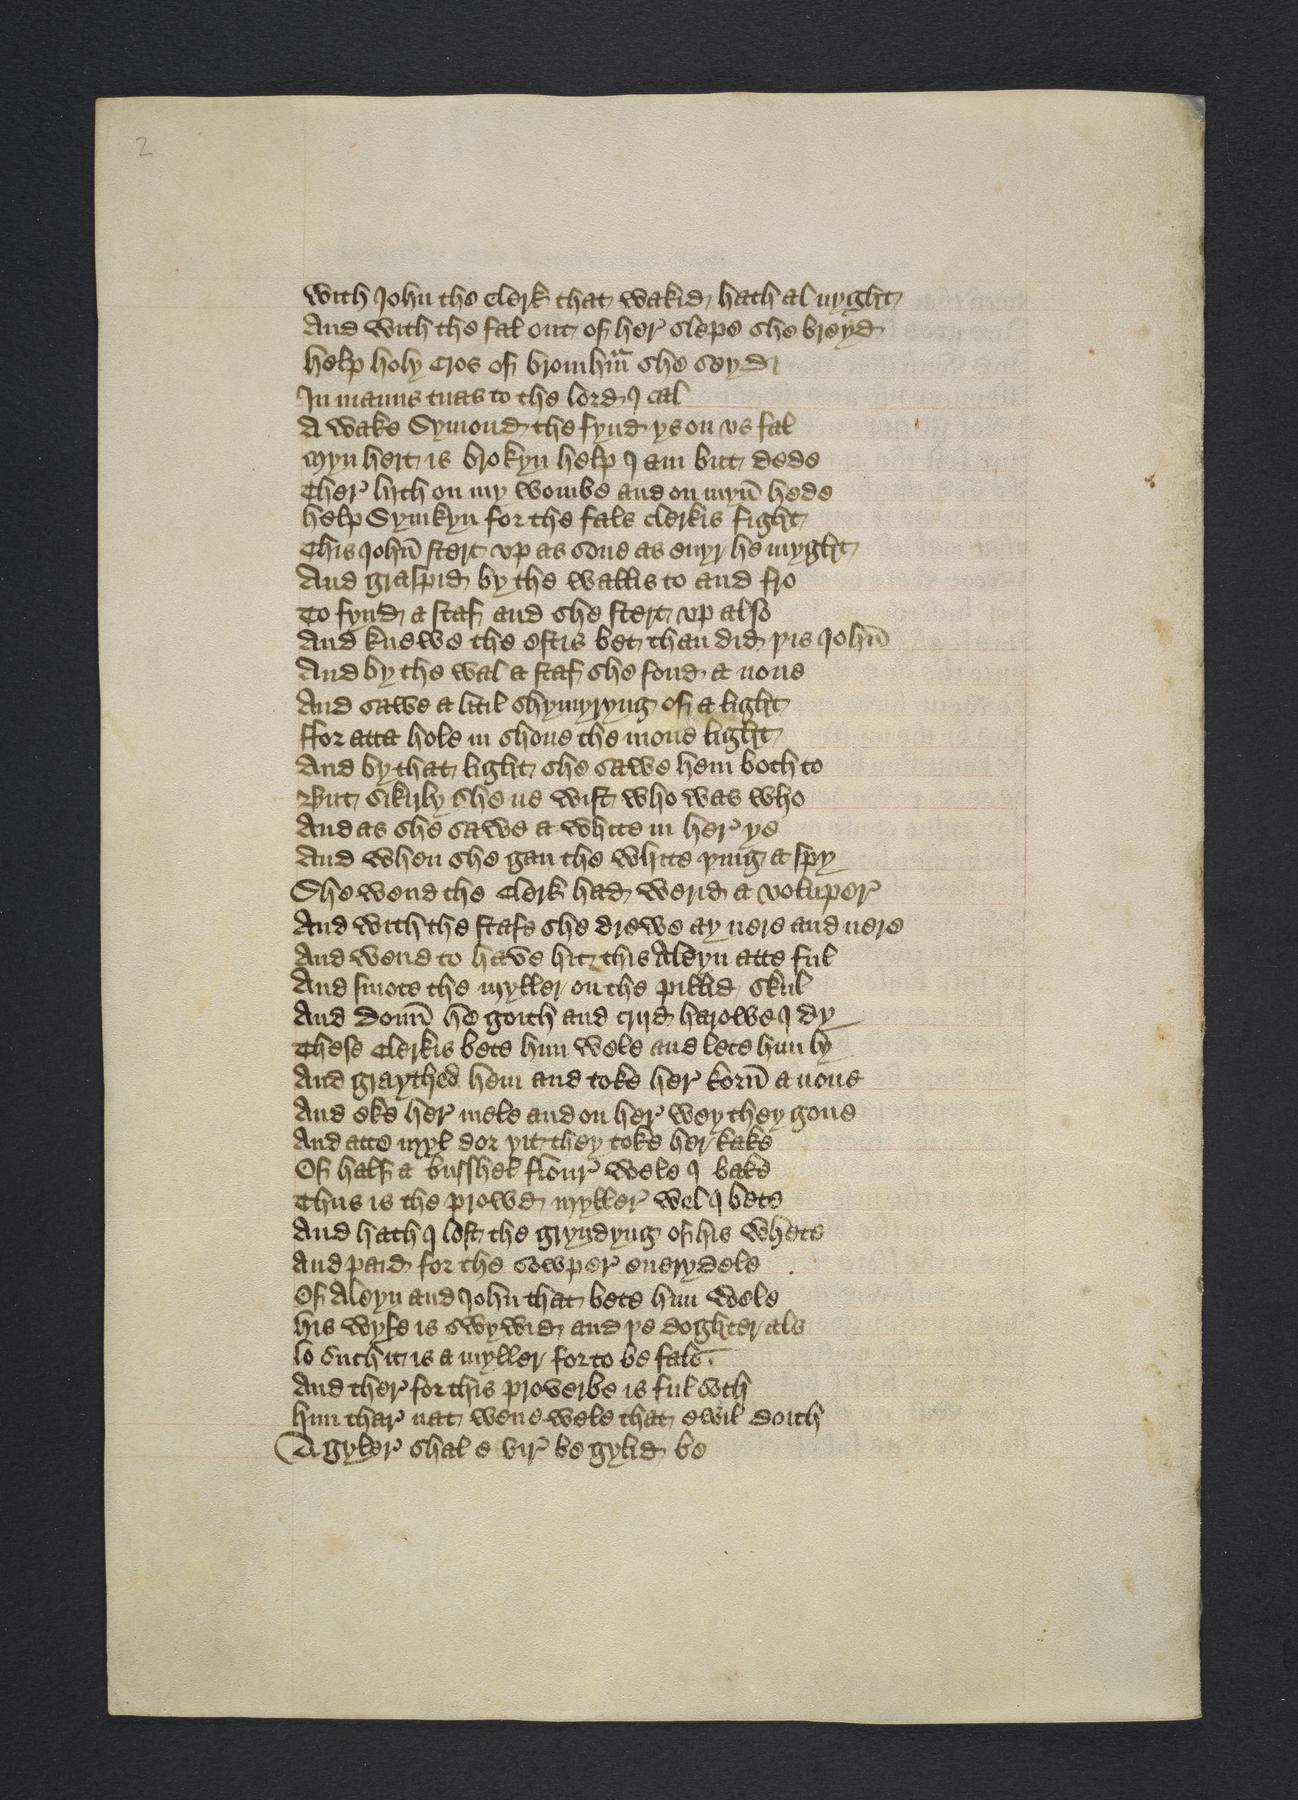 2
With John the Clerk that wakid hath al nyght
And with the fal out of her slepe she breyd
help holy Cros of bromhm̄ she seyd
In manus tuas to the lord I cal
A wake Symond the fynd ys on vs fal
Myn hert is brokyn help I am but dede
Ther lith on my wombe and on myn̄ hede
help Symkyn for the fals clerkis fight
This John̄ stert vp as sone as euyr he myght
And graspid by the wallis to and fro
To fynd a staf and she stert vp also
And knewe the estis bet than did yis John̄
And by the wal a staf she fond a none
And sawe a litil shymyryng of a light
ffor atta hole in shone the mone light
And by that light she sawe hem both to
But sikirly she ne wist who was who
And as she sawe a white in her ye
And when she gan the white þing a spy
She wend the Clerk had werid a voluper
And with the stafe she drewe ay nere and nere
And wend to have hit this Aleyn atte ful
And smote the myller on the pillid skul
And doun̄ he goith and crijd harowe I dy
These Clerkis bete him wele and lete him ly
And graythed hem and toke her korn̄ a none
And eke her mele and on her wey they gone
And atte myl dor yit they toke her kake
Of half a busshel flour wele I bake
Thus is the prowd myller wel I bete
And hath I lost the gryndyng of his whete
And paid for the sowper euerydele
Of Aleyn and John that bete him wele
his wyfe is swywid and þe doghter als
lo such it is a myller for to be fals
And ther for this proverbe is ful soth
him thar nat wene wele that ewil doith
A gyler shal e vir be gylid be